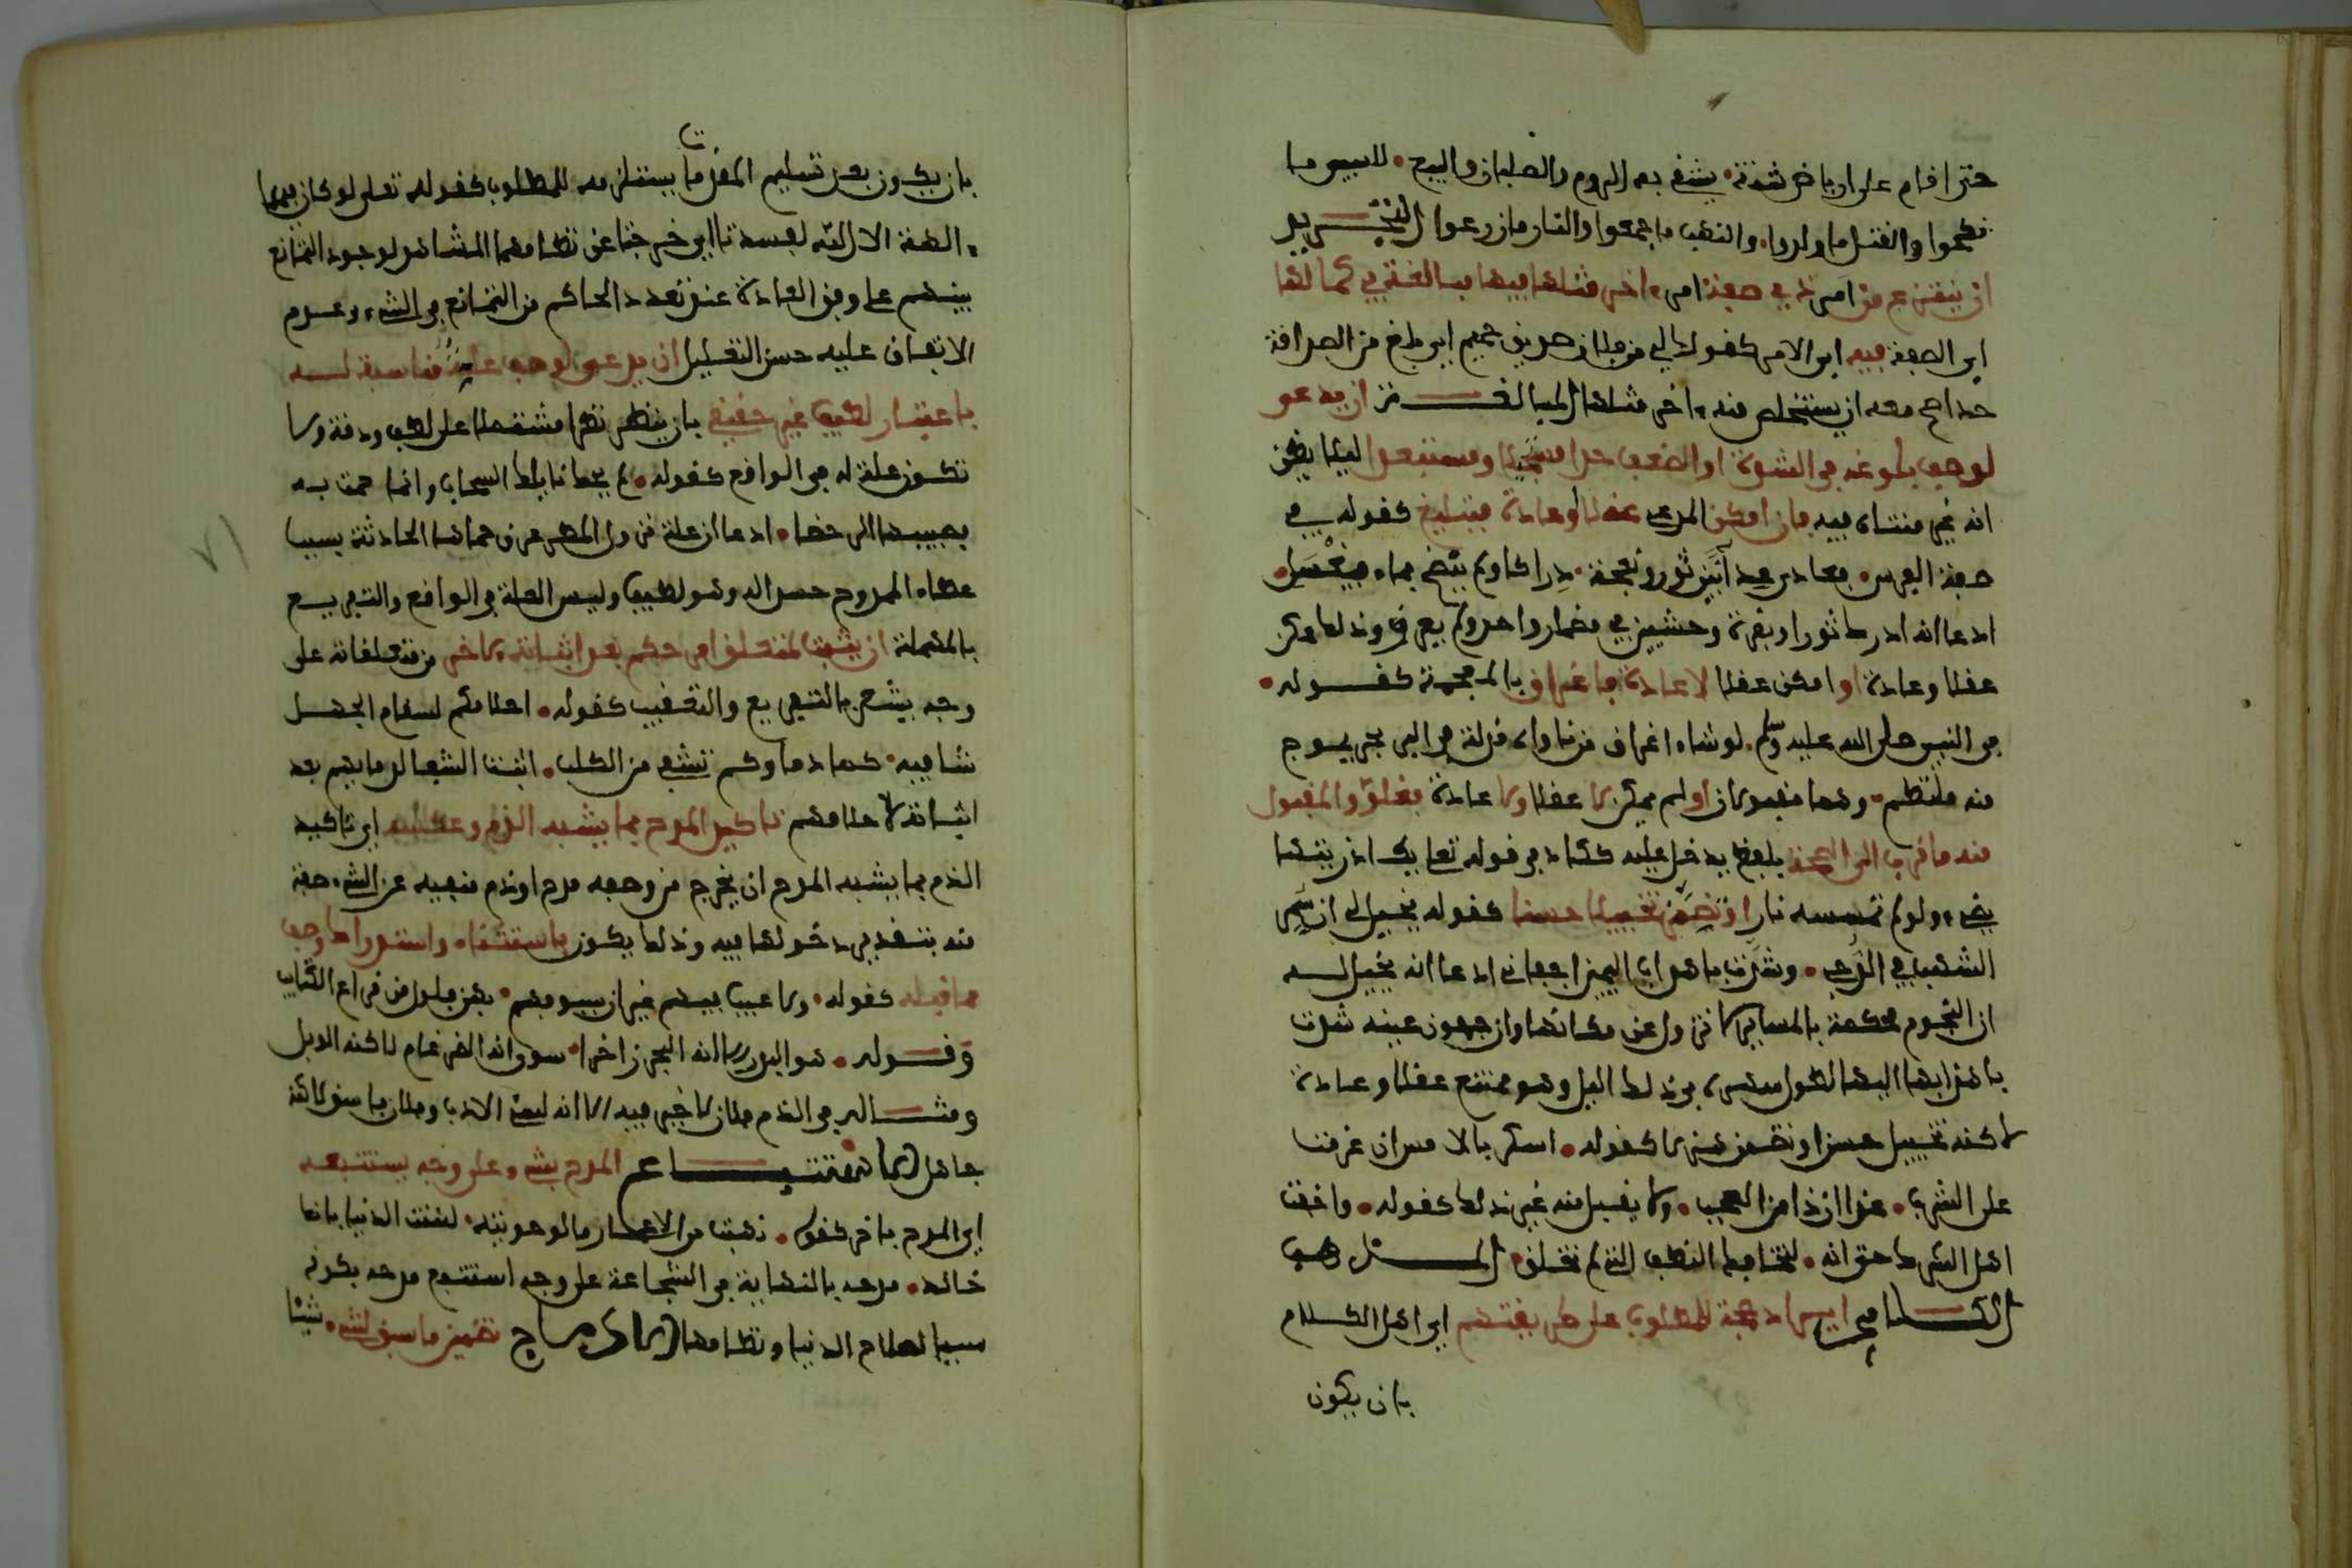 حتى اقام على ارباض خرشنة • يشقى به الروم والصلبان والبيع • للسبي ما
نكحوا والقتل ما ولدوا • والنهب ما جمعوا والنار ما زرعوا التجريد
ان ينتزع من امر ذي صفة امر اخر مثلها فيها مبالغة في كمالها
اي الصفة فيه اي الامر كقولك لي من فلان صديق حميم اي بلغ من الصداقة
حدا صح معه ان يستخلص منه اخر مثلها المبالغة ان يدعى
لوصف بلوغه في الشدة او الضعف حدا مستحيلا او مستبعدا ليلا يظن
انه غير متناه فيه فان امكن المدعى عقلا وعادة فتبليغ كقوله في
صفة الفرس • فعادى عداء بين ثور ونعجة • دراكا ولم ينضح بماء فيغسل •
ادعا انه ادرك ثورا وبقرة وحشيين في مضمار واحد ولم يعرق وذلك ممكن
عقلا وعادة او امكن عقلا لا عادة فاغراق بالمعجمة كقوله •
في النبي صلى الله عليه وسلم • لو شاء اغراق من ناواه مد له في البر بحر بموج
منه ملتطم • وهما مقبولان او لم يمكن لا عقلا ولا عادة فغلو والمقبول
منه ما قرب الى الصحة بلفظ يدخل عليه كيكاد في قوله تعلى يكاد زيتها
يضيء ولو لم تمسسه نار او تضمن تخييلا حسنا كقوله يخيل لي ان سمر
الشهب في الدجى • وشدت باهدابي اليهن اجفاني ادعا انه يخيل له
ان النجوم محكمة بالمسامير لا تزول عن مكانها وان جفون عينه شدت
باهدابها اليها لطول سهره في ذلك الليل وهو ممتنع عقلا وعادة
لاكنه تخييل حسن او تضمن هزلا كقوله • اسكر بالامس ان عزمت
على الشرب • غدا ان ذا من العجب • ولا يقبل منه غير ذلك كقوله • واخفت
اهل الشرك حتى انه • لتخافك النطف التي لم تخلق • المذهب
الكلامي ايراد حجة للمطلوب على طريقتهم اي اهل الكلام
بان يكون
بان يكون بعد تسليم المقدمات يستلزمه للمطلوب كقوله تعلى لو كان فيهما
ءالهة الا الله لفسدتا اي خرجتا عن نظامهما المشاهد لوجود التمانع
بينهم على وفق العادة عند تعدد الحاكم من التمانع في الشيء وعدم
الاتفاق عليه حسن التعليل ان يدعى لوصف علة مناسبة له
باعتبار لطيف غير حقيقي بان ينظر نظرا مشتملا على لطف ودقة ولا
تكون علة له في الواقع كقوله • لم يحك نايلك السحاب وانما حمت به
فصبيبها الرحضاء • ادعا ان علة نزول المطر عرق حماها الحادثة بسبب
عطاء الممدوح حسدا له وهو لطيف وليس العلة في الواقع والتفريع
بالمهملة ان يثبت لمتعلق امر حكم بعد اثباته لاخر من متعلقاته على
وجه يشعر بالتفريع والتعقيب كقوله • احلامكم لسقام الجهل
شافية • كما دماؤكم تشفي من الكلب • اثبت الشفا لدمايهم بعد
اثباته لاحلامهم تاكيد المدح بما يشبه الذم وعكسه اي تاكيد
الذم بما يشبه المدح ان يخرج من وصفه مدح او ذم منفيه عن الشيء صفة
منه بتقدير دخولها فيه وذلك يكون باستثناء واستدراك وصف
مما قبله كقوله • ولا عيب فيهم غير ان سيوفهم • بهن فلول من قراع الكتايب
وقوله • هو البدر الا انه البحر زاخرا • سوى انه الضرغام لاكنه الوبل
ومثاله في الذم فلان لا خير فيه الا انه ليس الادب وفلان فاسق لاكنه
جاهل الاستتباع المدح بشيء على وجه يستتبعه
اي المدح باخر كقوله • نهبت من الاعمار ما لو حويته • لهنئت الدنيا بانك
خالد • مدحه بالنهاية في الشجاعة على وجه استتبع مدحه بكونه
سببا لصلاح الدنيا ونظامها الادماج تضمين ما سيق لشيء • شيئا